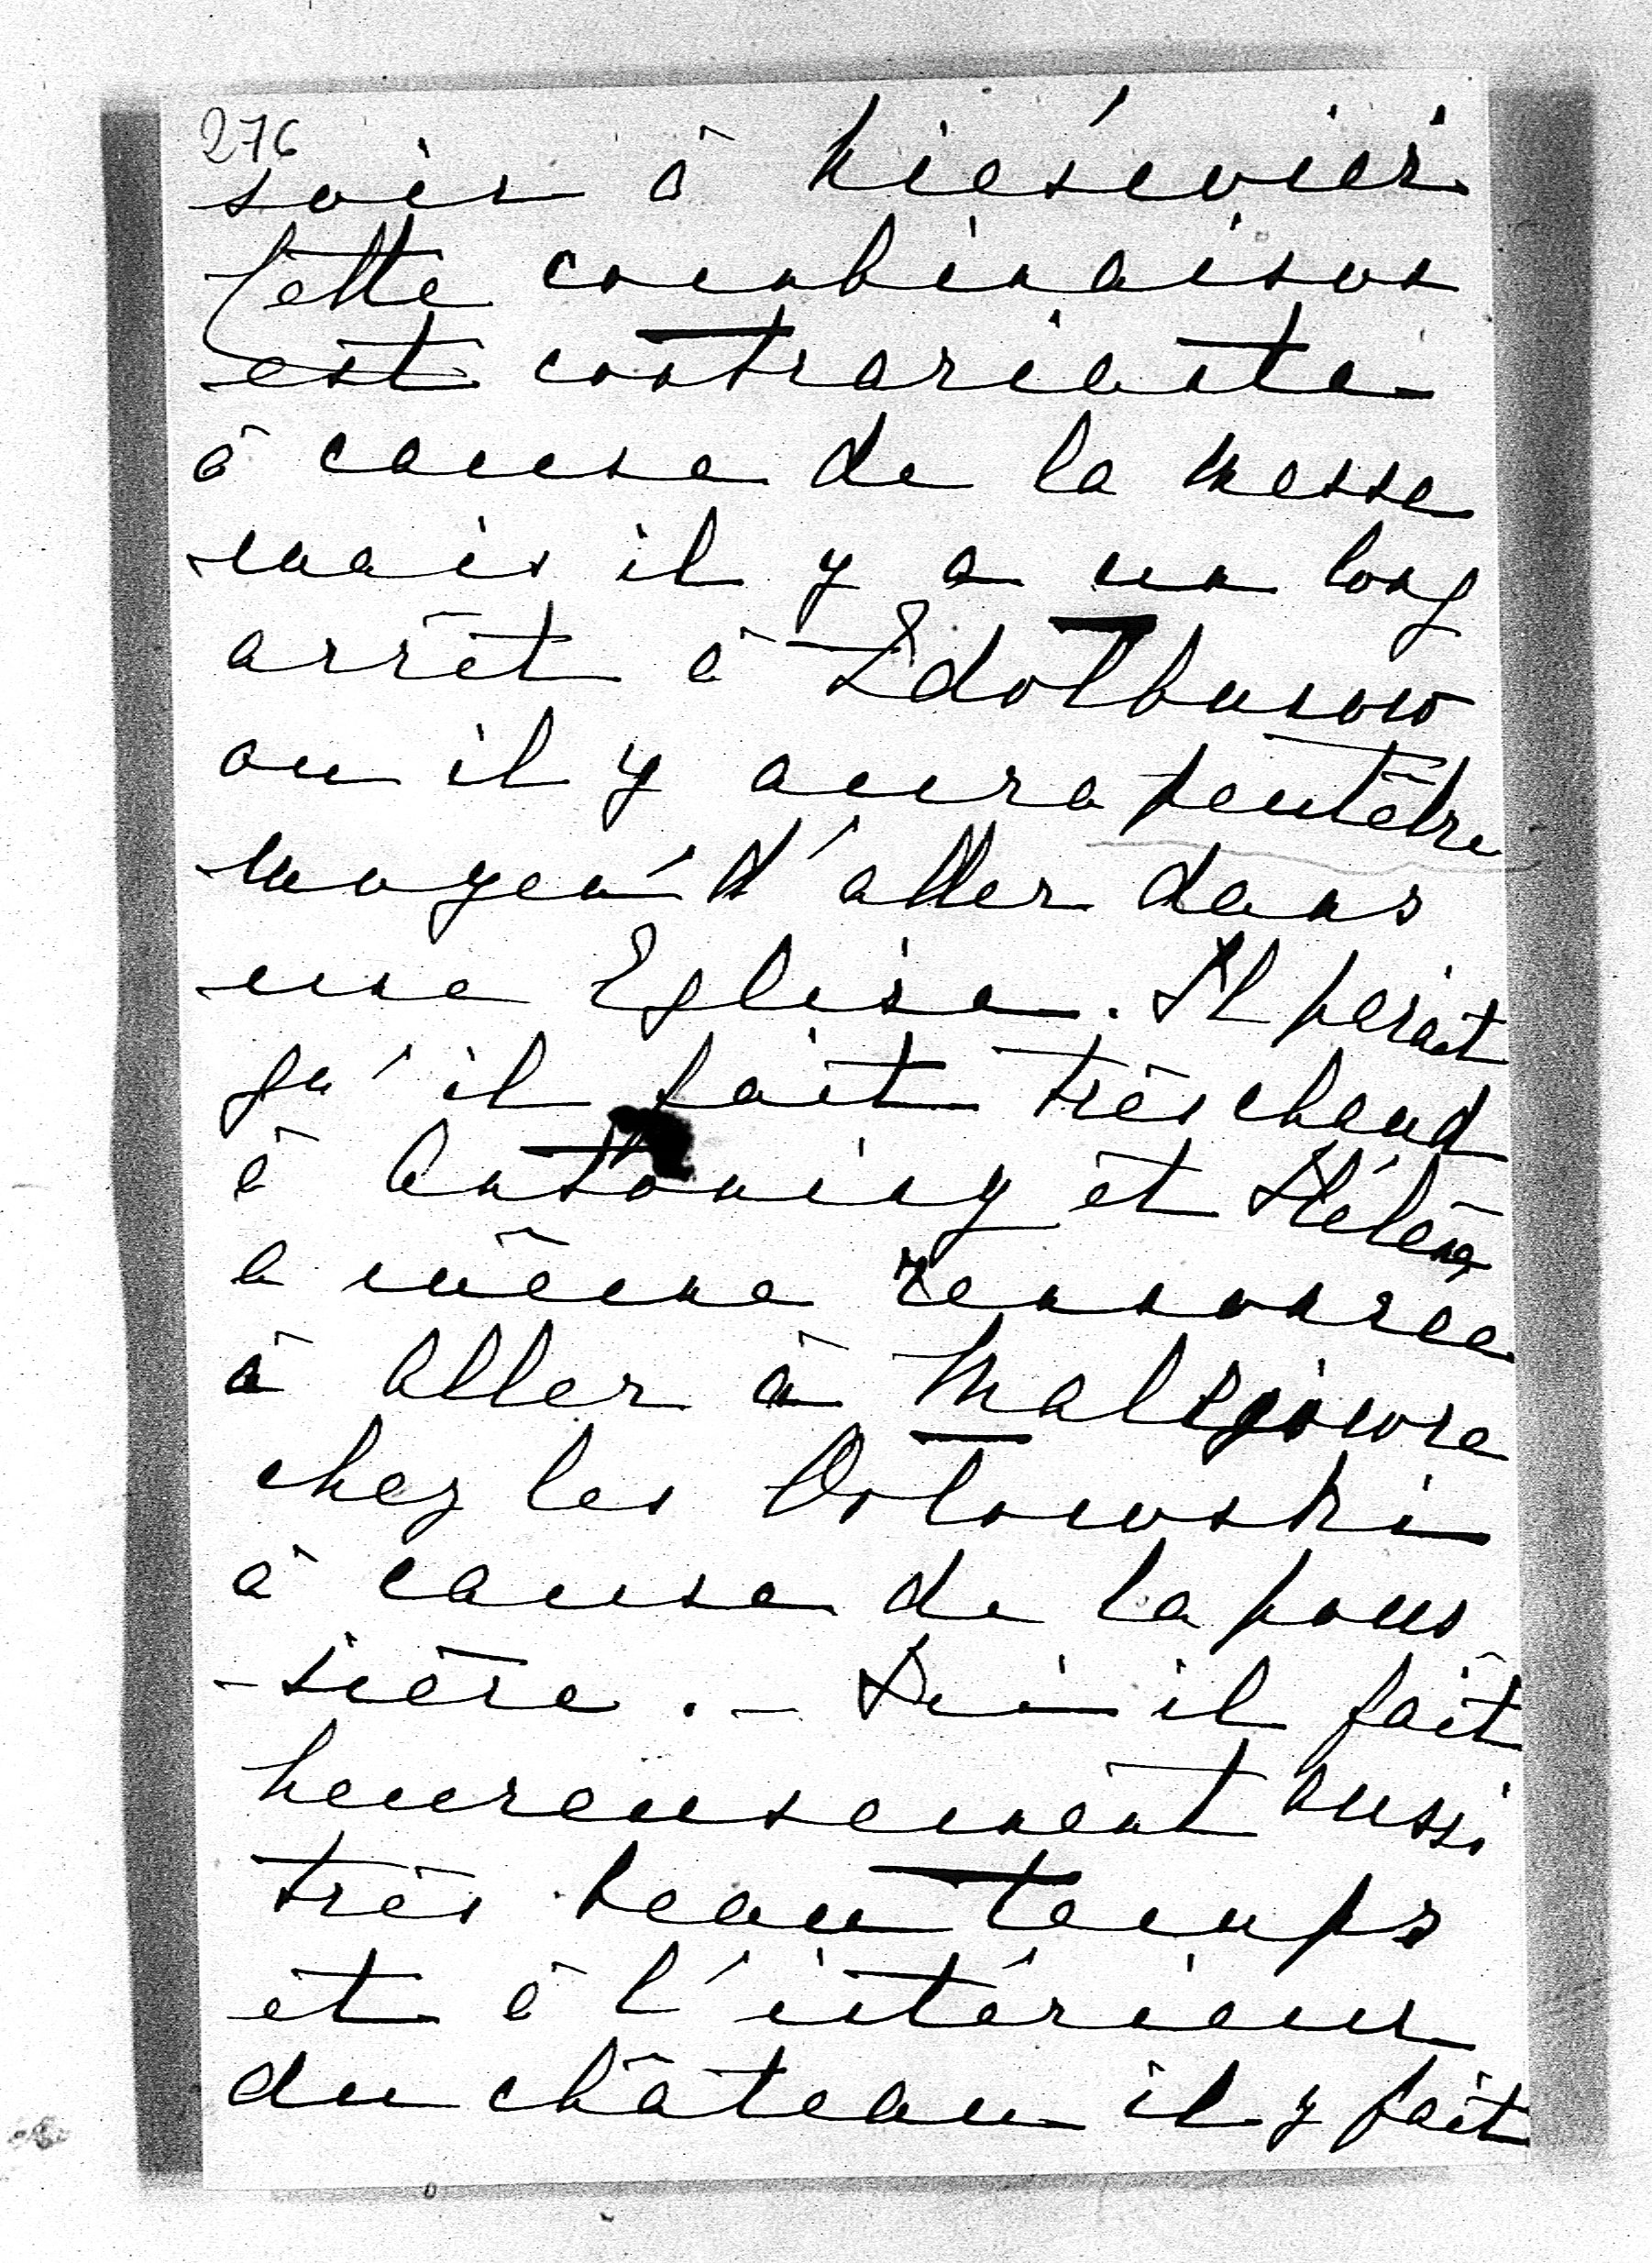 276
soir à Nieświez
Cette combinaison
est contrariante
à cause de la messe
mais il y a un long
arrêt à Zdolbunow
ou il y aura peutêtre
moyen d'aller dans
une Eglise. Il parait
qu'il fait très chaud
à Antoniny et Hélène
a même renoncée
à aller à Malejowce
chez les Orlowski
à cause de la pous
-sière. - Ici il fait
heureusement aussi
très beau temps
et à l'intérieur
du château il y fait